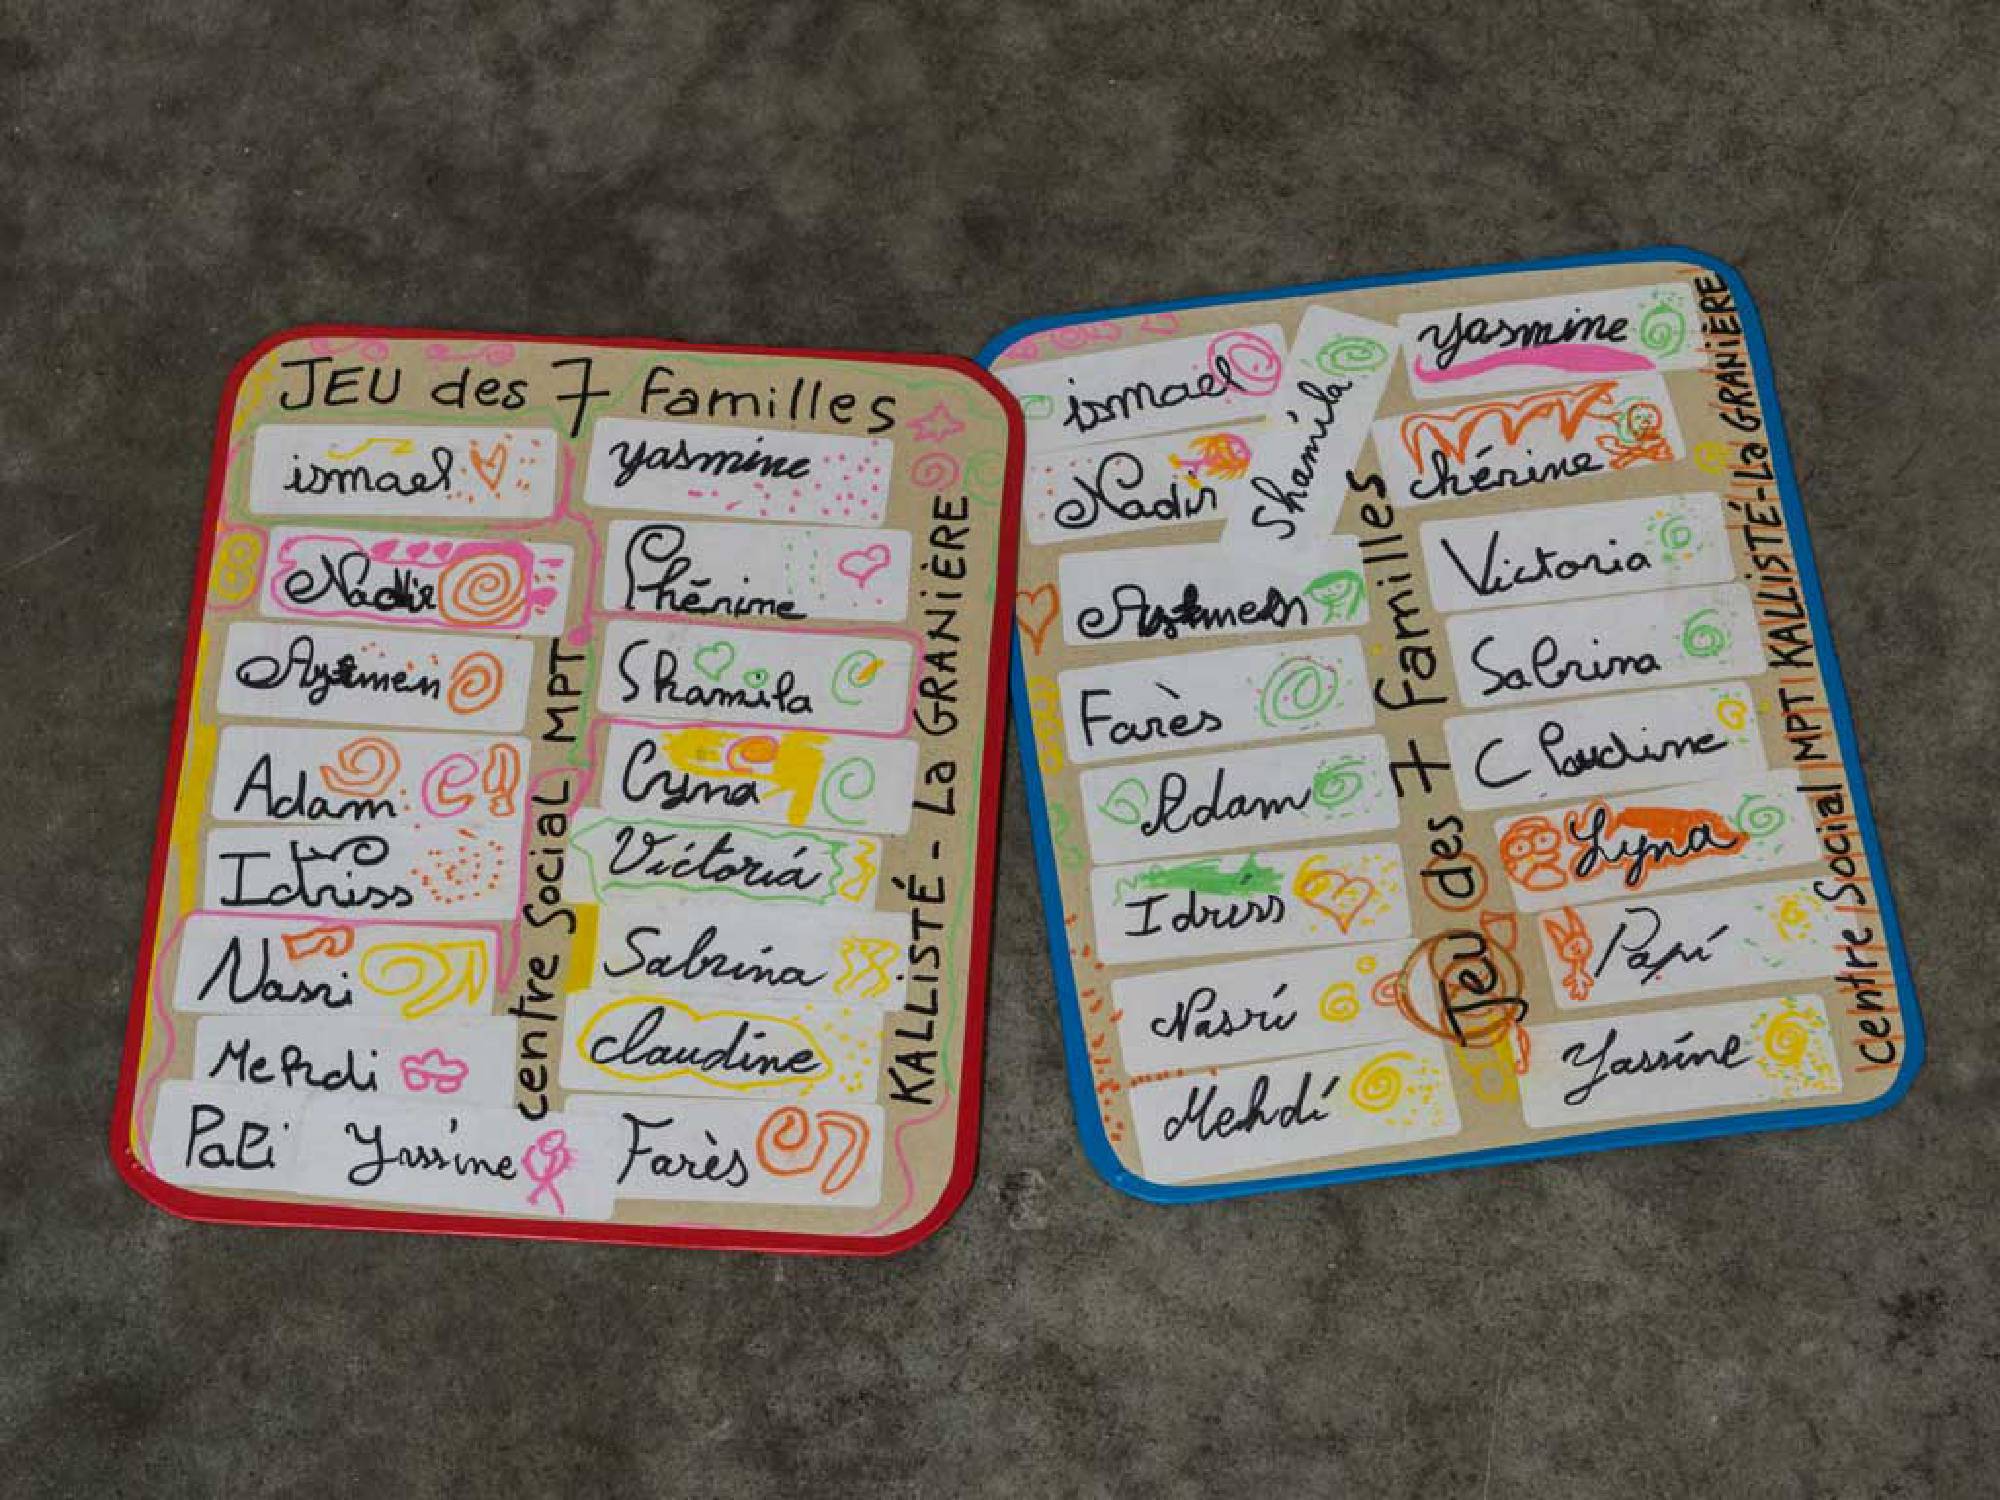 JEU des 7 familles
ismael
Nadir
Aytmen
Adam
Idriss
Nasri
Mehdi
Papi
Yassine
centre Social MPT
yasmine
Chérine
Shamila
Lyna
Victoria
Sabrina
claudine
Farès
KALLISTÉ - La GRANIÈRE
ismael
Nadir
Shamila
Aytmen
Farès
Adam
Idriss
Nasri
Mehdi
Jeu des 7 familles
yasmine
chérine
Victoria
Sabrina
Claudine
Lyna
Papi
Yassine
Centre Social MPT KALLISTÉ-La GRANIÈRE